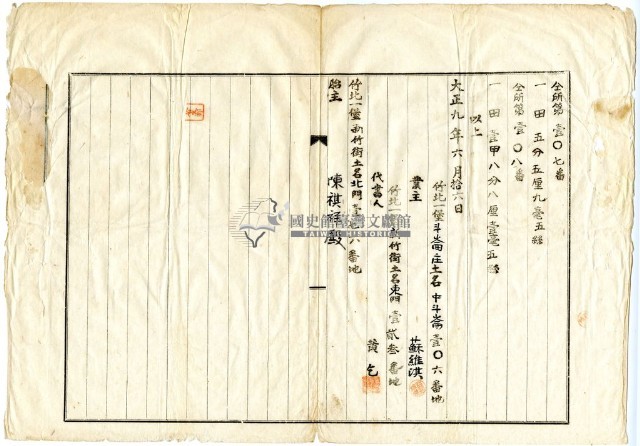 仝所第壹〇七番
一 田 五分五厘九毫五絲
仝所第壹〇八番
一 田 壹甲八分八厘壹毫五絲
以上
大正九年六月拾六日
竹北一堡斗崙庄土名中斗崙壹〇六番地
業主 蘇維淇
竹北一堡新竹街土名東門壹貳叁番地
代書人 黃乞
竹北一堡新竹街土名北門 八番地
胎主 陳祺 殿
國史館臺灣文獻館
TAIWAN HISTORICA